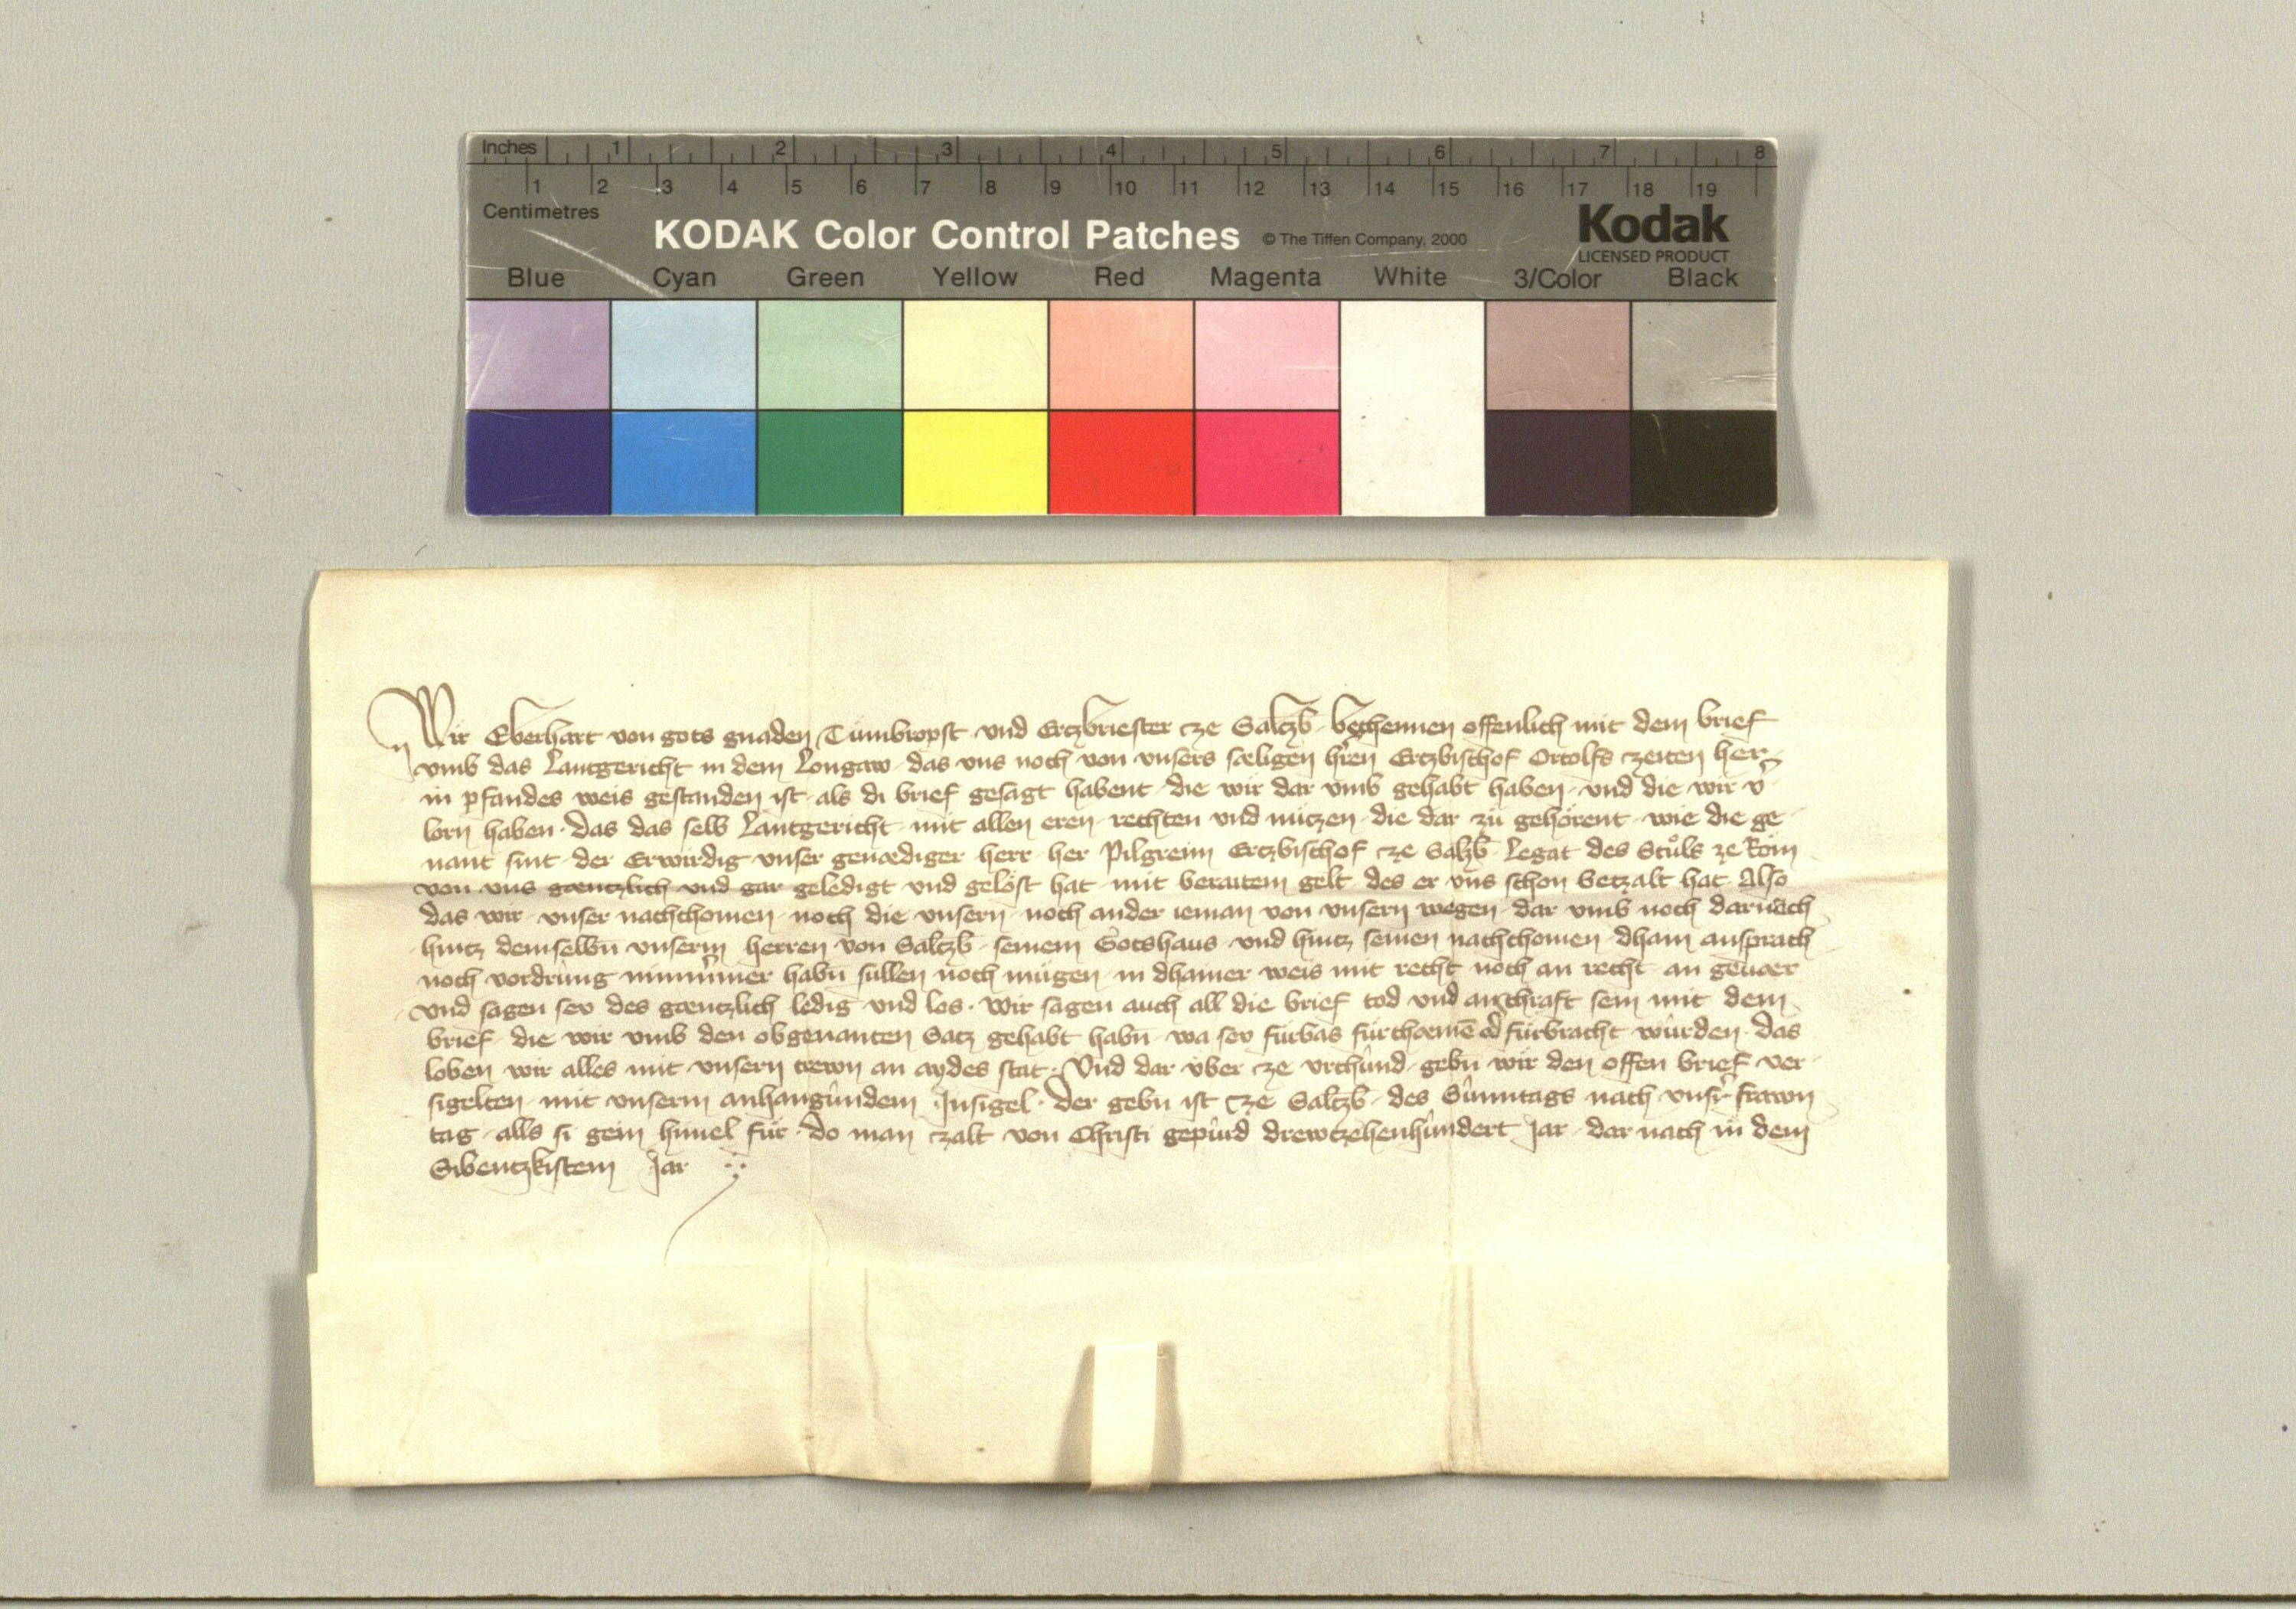 Inches 1 2 3 4 5 6 7 8
1 2 3 4 5 6 7 8 9 10 11 12 13 14 15 16 17 18 19
Centimetres
KODAK Color Control Patches © The Tiffen Company, 2000 Kodak
LICENSED PRODUCT
Blue Cyan Green Yellow Red Magenta White 3/Color Black
Wir Eberhart von gots gnaden Tůmbropst vnd Ertzbriester ze Saltzb bechennen offenlich mit dem brief
vmb das Lantgericht in dem Longaw das vns noch von vnsers sæligen hren Ertzbischof Ortolfs czeiten her
in pfandes weis gestanden ist als di brief gesagt habent die wir dar vmb gehabt haben vnd die wir v̄
lorn haben das das selb Lantgericht mit allen eren rechten vnd nützen die dar zů gehörent wie die ge
nant sint der Erwirdig vnser genædiger herr her Pilgreim Ertzbischof ze Salzb̄ Legat des Stůls ze Rom
von vns gæntzlich vnd gar geledigt vnd gelöst hat mit beraitem gelt des er vns schon betzalt hat Also
das wir vnser nachchomen noch die vnsern noch ander ieman von vnsern wegen dar vmb noch darnach
hintz demselbn̄ vnserm herren von Saltzb̄ seinem Gotshaus vnd hintz seinen nachchomen dhain ansprach
noch vordrung nimmer habn̄ sullen noch mügen in dhainer weis mit recht noch an recht an geuær
vnd sagen sev des gæntzlich ledig vnd los wir sagen auch all die brief tod vnd an chraft sein mit dem
brief die wir vmb den obgenanten Satz gehabt habn̄ wa sev fürbas fürchæmē od̄ fürbracht würden das
loben wir alles mit vnsern trewn an aydes stat Vnd dar vber ze vrchünd gebn̄ wir den offen brief ver
sigelten mit vnserm anhangundem Insigel Der gebn̄ ist ze Saltzb̄ des Sunntags nach vnsr̄ frawn
tag alls si gein himel für do man czalt von Christi gepůrd drewtzehenhundert Jar dar nach in dem
Sibentzkistem Jar